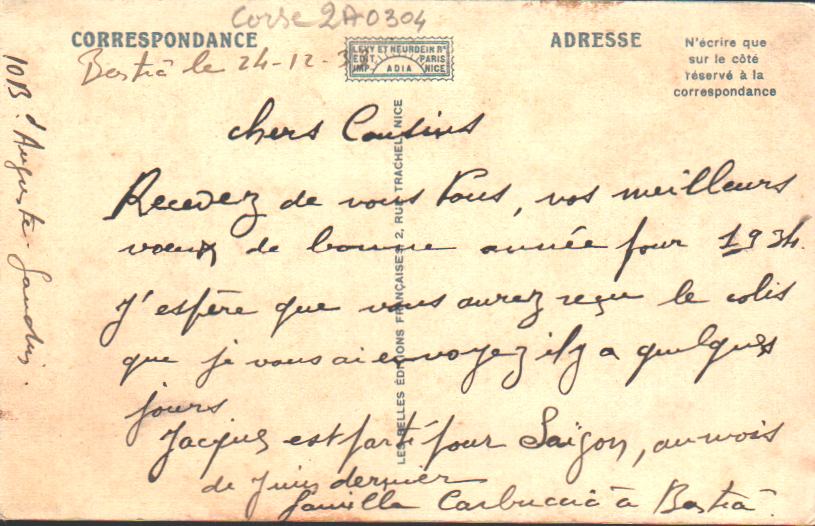 Corse 2A0304
CORRESPONDANCE
ADRESSE
N'écrire que
sur le côté
réservé à la
correspondance
LEVY ET NEURDEIN Rs
EDIT. PARIS
IMP. ADIA NICE
Bastia le 24-12-33
chers Cousins
Recevez de nous tous, nos meilleurs
voeux de bonne année pour 1934.
J'espère que vous aurez reçu le colis
que je vous ai envoyez il y a quelques
jours
Jacques est parti pour Saïgon, au mois
de Juin dernier
famille Carbuccia à Bastia.
10 Bd Auguste Gaudin.
LES BELLES ÉDITIONS FRANÇAISES 2, RUE TRACHEL, NICE